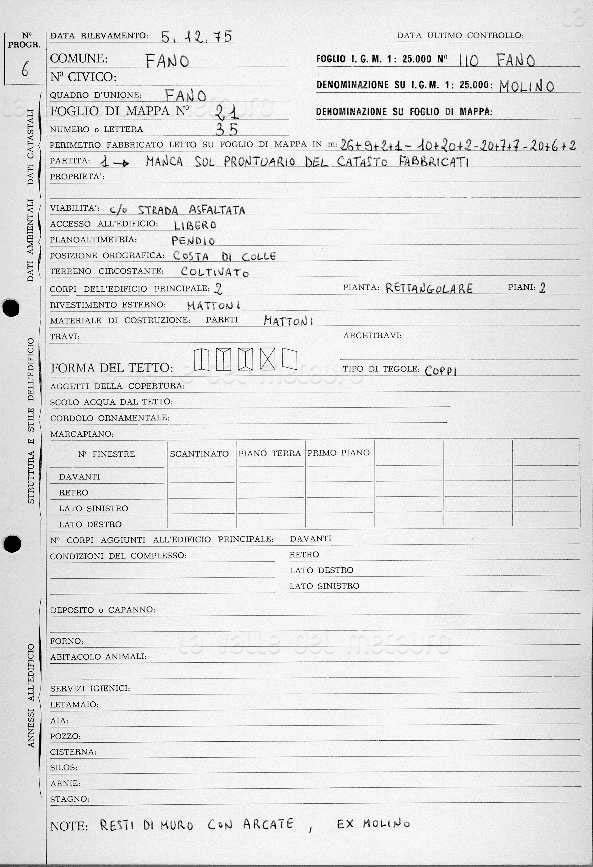 N° PROGR.
6
DATA RILEVAMENTO: 5.12.75 DATA ULTIMO CONTROLLO:
COMUNE: FANO FOGLIO I.G.M. 1:25.000 N° 110 FANO
N° CIVICO: DENOMINAZIONE SU I.G.M. 1:25.000: MOLINO
QUADRO D'UNIONE: FANO
FOGLIO DI MAPPA N° 21 DENOMINAZIONE SU FOGLIO DI MAPPA:
NUMERO o LETTERA 35
PERIMETRO FABBRICATO LETTO SU FOGLIO DI MAPPA IN m: 26+9+2+1-10+20+2-20+7+7-20+6+2
PARTITA: 1 → MANCA SUL PRONTUARIO DEL CATASTO FABBRICATI
PROPRIETA':
DATI CATASTALI
VIABILITA': c/o STRADA ASFALTATA
ACCESSO ALL'EDIFICIO: LIBERO
PLANOALTIMETRIA: PENDIO
POSIZIONE OROGRAFICA: COSTA DI COLLE
TERRENO CIRCOSTANTE: COLTIVATO
DATI AMBIENTALI
CORPI DELL'EDIFICIO PRINCIPALE: 2 PIANTA: RETTANGOLARE PIANI: 2
RIVESTIMENTO ESTERNO: MATTONI
MATERIALE DI COSTRUZIONE: PARETI MATTONI
TRAVI: ARCHITRAVI:
FORMA DEL TETTO: TIPO DI TEGOLE: COPPI
AGGETTI DELLA COPERTURA:
SCOLO ACQUA DAL TETTO:
CORDOLO ORNAMENTALE:
MARCAPIANO:
N° FINESTRE SCANTINATO PIANO TERRA PRIMO PIANO
DAVANTI
RETRO
LATO SINISTRO
LATO DESTRO
STRUTTURA E STILE DELL'EDIFICIO
N° CORPI AGGIUNTI ALL'EDIFICIO PRINCIPALE: DAVANTI
CONDIZIONI DEL COMPLESSO: RETRO
LATO DESTRO
LATO SINISTRO
DEPOSITO o CAPANNO:
FORNO:
ABITACOLO ANIMALI:
SERVIZI IGIENICI:
LETAMAIO:
AIA:
POZZO:
CISTERNA:
SILOS:
ARNIE:
STAGNO:
ANNESSI ALL'EDIFICIO
NOTE: RESTI DI MURO CON ARCATE, EX MOLINO